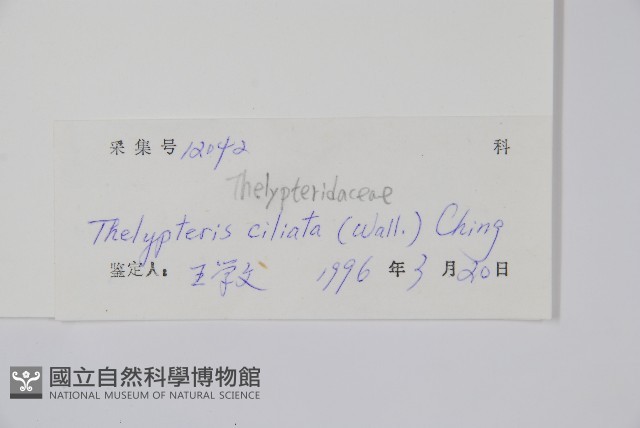 采集号 12042 科
Thelypteridaceae
Thelypteris ciliata (Wall.) Ching
鉴定人: 王学文 1996 年 3 月 20 日
國立自然科學博物館
NATIONAL MUSEUM OF NATURAL SCIENCE